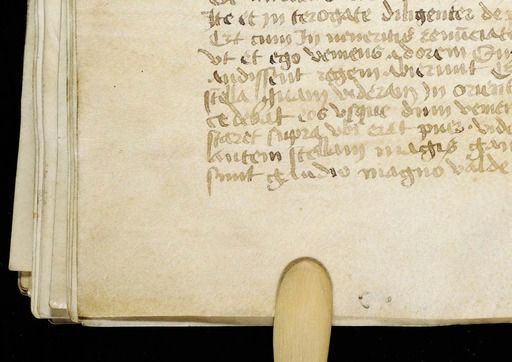 Ite et in terogate diligenter de
Et cum In veneritis renuciate
vt et ego veniens adorem
Audissent regem abierunt
stella quam viderant In orient
cedebat eos vsque dum venien
staret supra vbi erat puer vide
autem stellam magis gaui
sunt gaudio magno valde